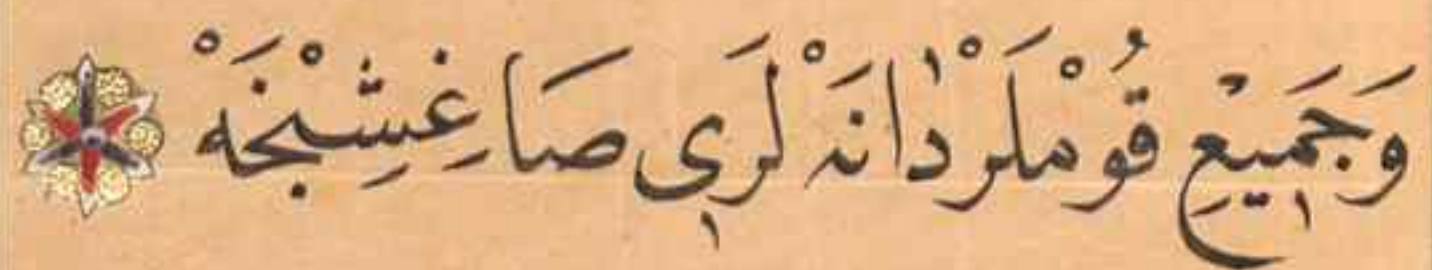 وَجَمِيعِ قُومْلَرْ دَانَهْ لَرِى صَاغِشِنْجَهْ